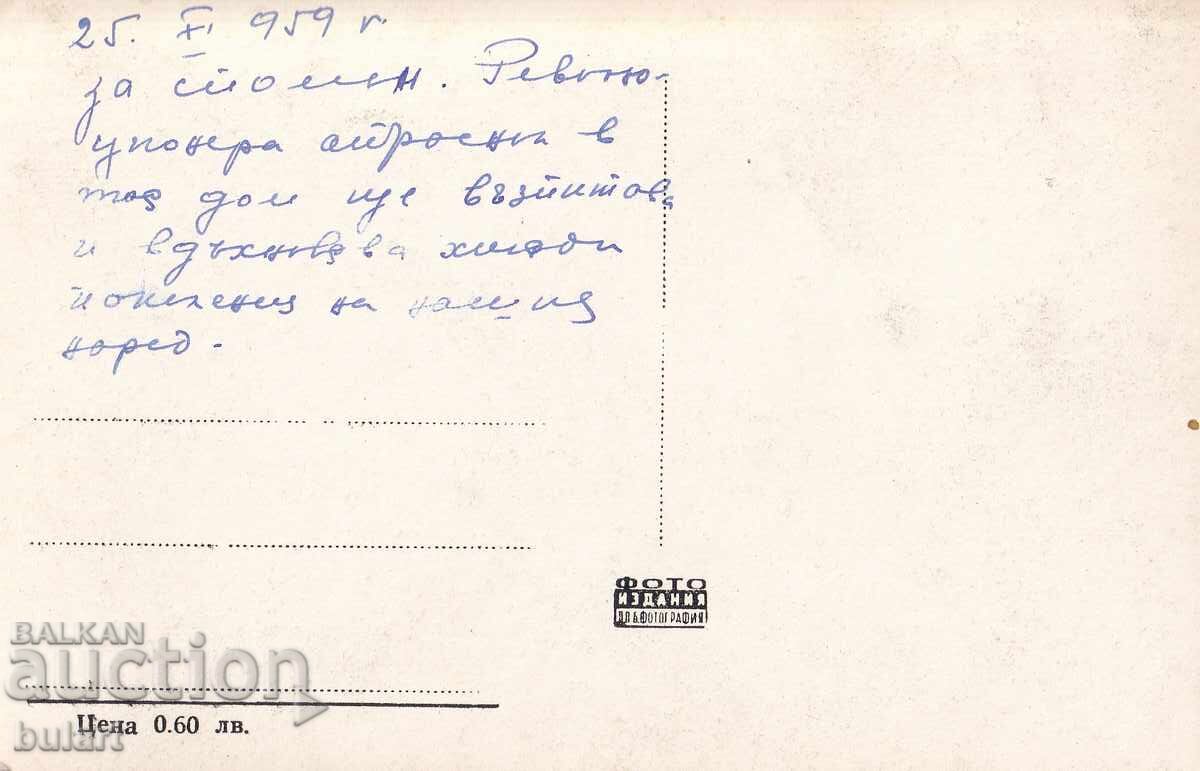 25. XI 959 г.
за спомен.
в
тоя дом ще възпитава
и вдъхновява хиляди
поколения на нашия
народ.
ФОТО
ИЗДАНИЯ
Д П Б. ФОТОГРАФИЯ
BALKAN
auction
bulart
Цена 0.60 лв.